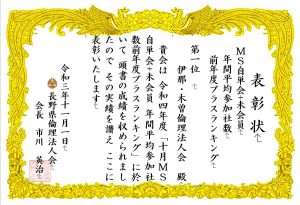 表彰状
MS自単会+未会員
年間平均参加社数
前年度プラスランキング
第一位
伊那・木曽倫理法人会 殿
貴会は 令和四年度「十月MS
自単会+未会員 年間平均参加社
数前年度プラスランキング」に於
いて 頭書の成績を収められまし
たので その実績を讃え ここに
表彰いたします
令和三年十一月一日
長野県倫理法人会
会長 市川 英治